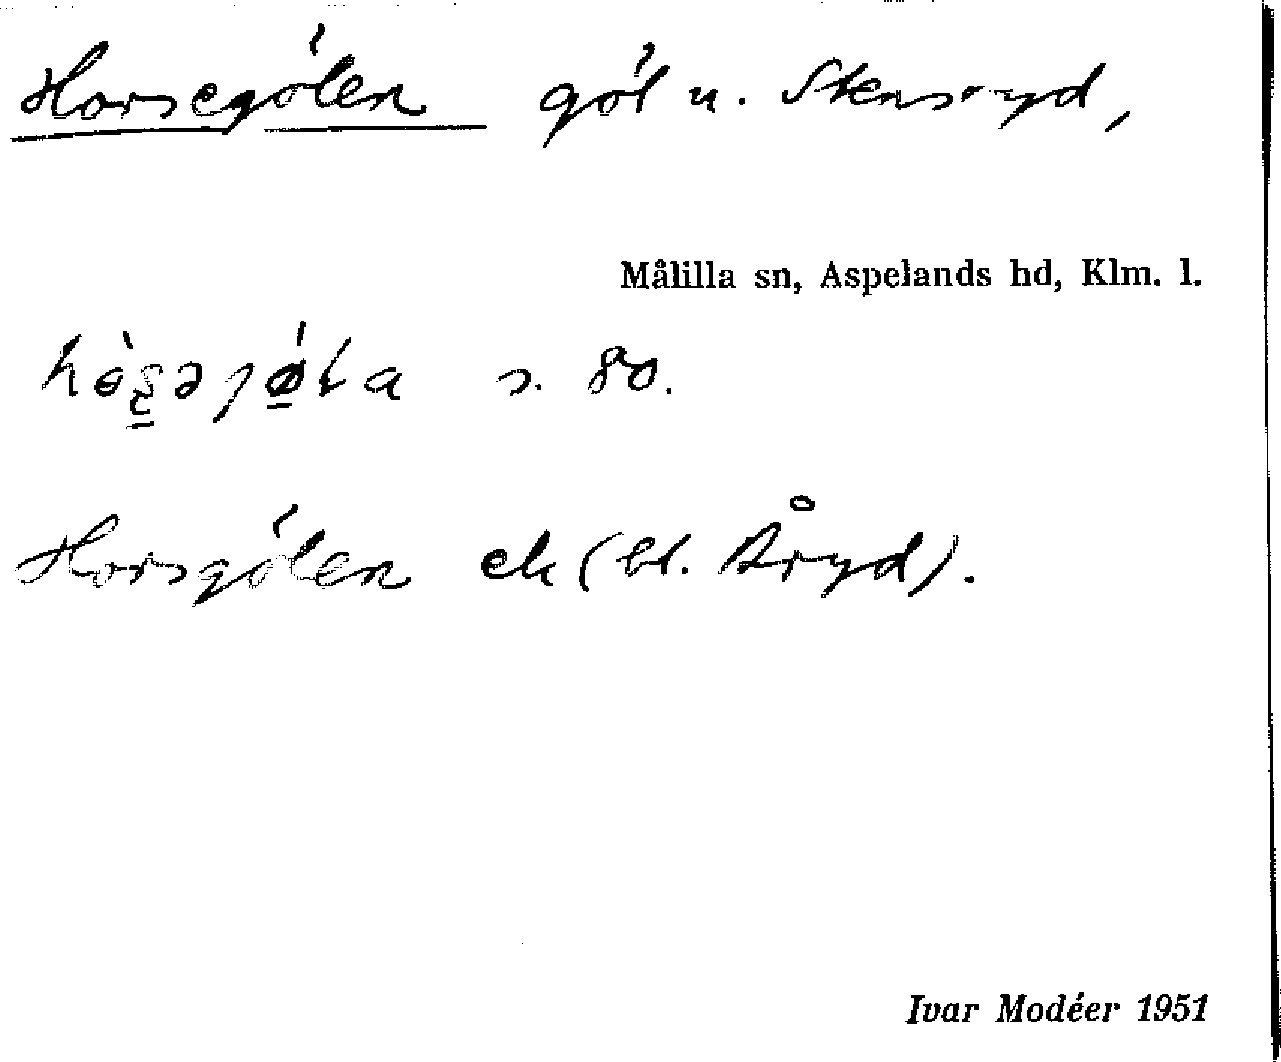 Horsegölen göl u. Stensryd,
Målilla sn, Aspelands hd, Klm. l.
s. 80.
Horsgölen ek (bl. Åryd).
Ivar Modéer 1951